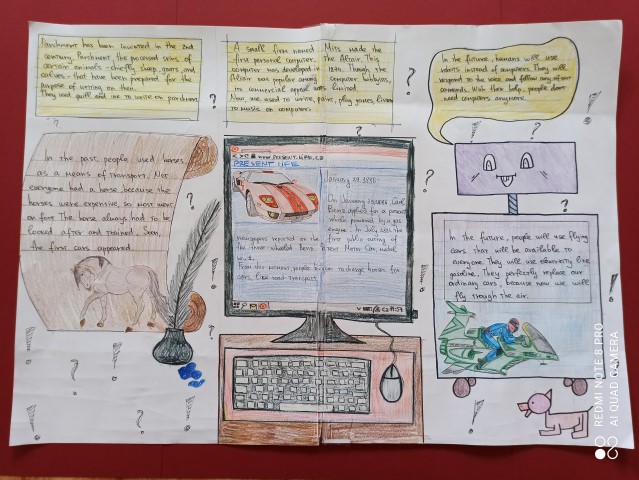 Parchment has been invented in the 2nd
century. Parchment the processed skins of
certain animals - chiefly sheep, goats, and
calves - that have been prepared for the
purpose of writing on them.
They used quill and ink to write on parchment.
In the past, people used horses
as a means of transport. Not
everyone had a horse because the
horses were expensive, so most went
on foot. The horse always had to be
looked after and trained. Soon,
the first cars appeared.
A small firm named Mits made the
first personal computer, The Altair. This
computer was developed in 1974. Though the
Altair was popular among computer hobbyists,
its commercial appeal was limited.
Now, we used to write, paint, play games, listen
to music on computers.
www.PRESENT.LIFE.CZ
PRESENT LIFE
January 29, 1886
On January 29, 1886, Carl
Benz applied for a patent
vehicle powered by a gas
engine. In July 1886 the
newspapers reported on the first public outing of
the three-wheeled Benz Patent Motor Car, model
no. 1.
From this moment people began to change horses for
cars.
In the future, humans will use
robots instead of computers. They will
respond to the voice and follow any of our
commands. With their help, people don't
need computers anymore.
In the future, people will use flying
cars that will be available to
everyone. They will use electricity like
gasoline. They perfectly replace our
ordinary cars, because now we will
fly through the air.
REDMI NOTE 8 PRO
AI QUAD CAMERA